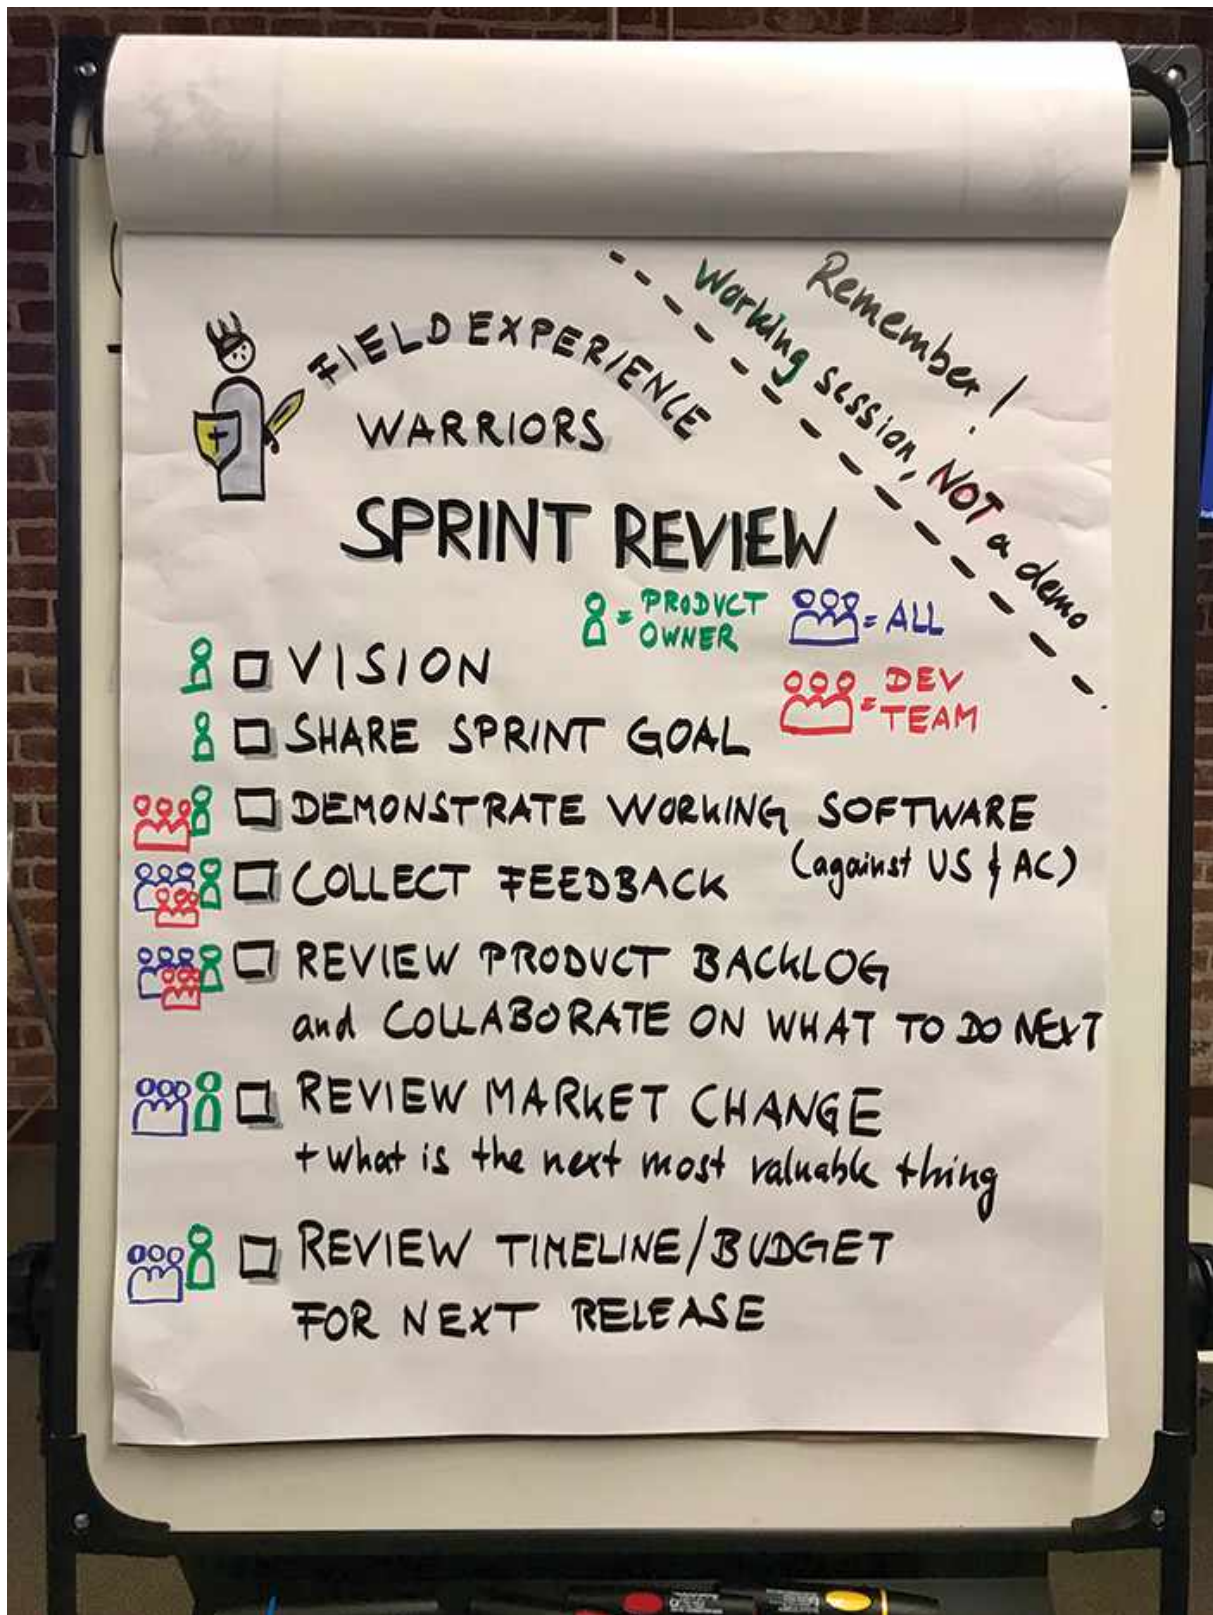 Remember!
Working session, NOT a demo
FIELD EXPERIENCE
WARRIORS
SPRINT REVIEW
= PRODUCT
OWNER
= ALL
= DEV
TEAM
VISION
SHARE SPRINT GOAL
DEMONSTRATE WORKING SOFTWARE
(against US & AC)
COLLECT FEEDBACK
REVIEW PRODUCT BACKLOG
and COLLABORATE ON WHAT TO DO NEXT
REVIEW MARKET CHANGE
+ what is the next most valuable thing
REVIEW TIMELINE/BUDGET
FOR NEXT RELEASE